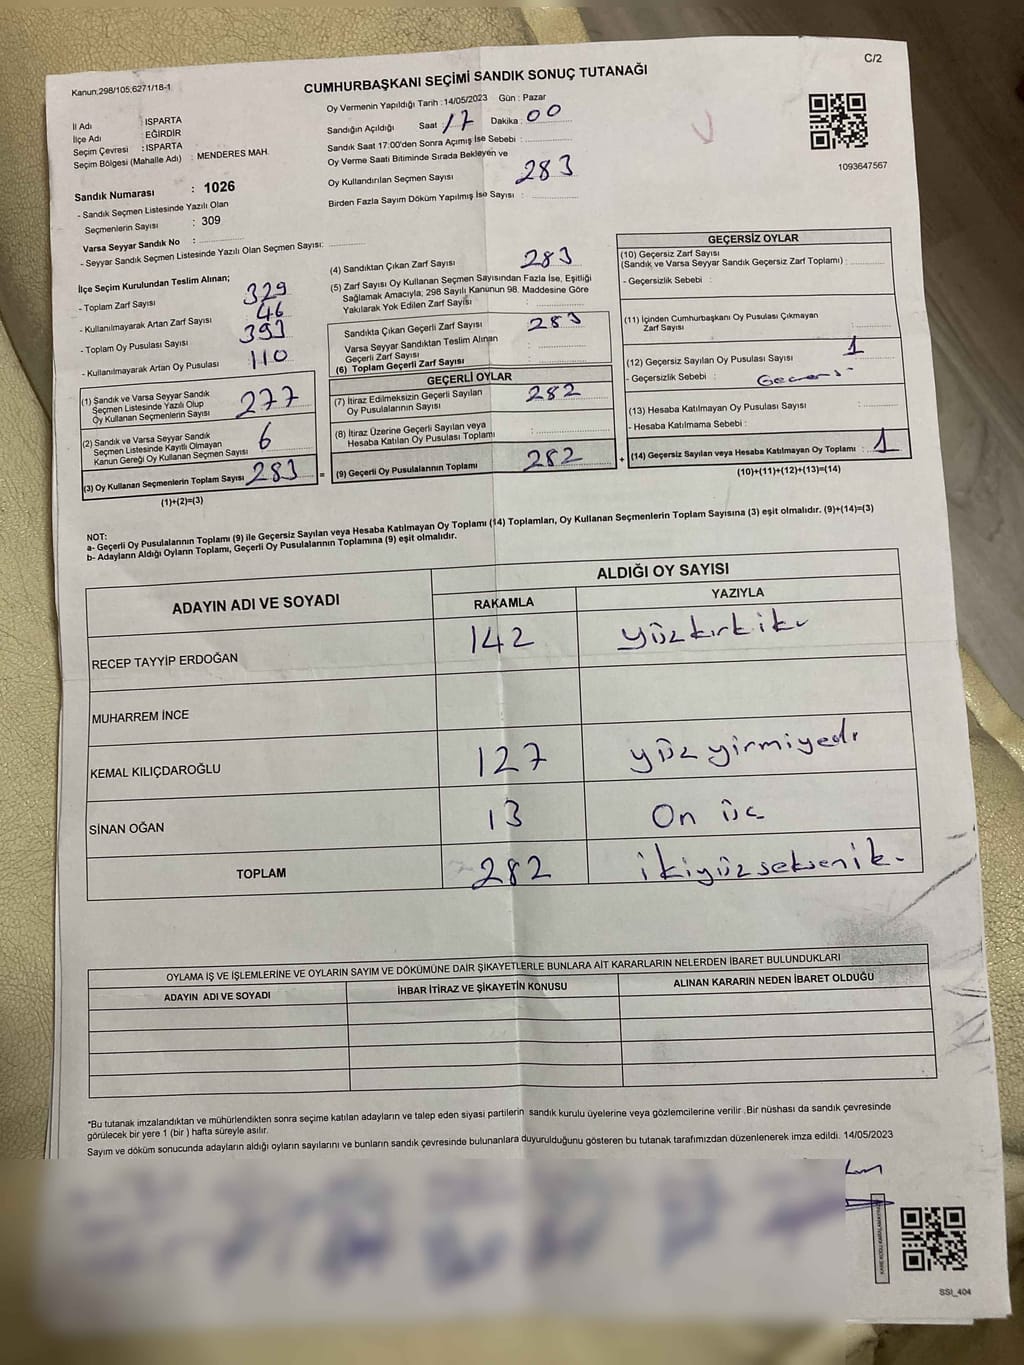 C/2
Kanun:298/105;6271/18-1
CUMHURBAŞKANI SEÇİMİ SANDIK SONUÇ TUTANAĞI
Oy Vermenin Yapıldığı Tarih :14/05/2023 Gün : Pazar
İl Adı : ISPARTA
İlçe Adı : EĞİRDİR
Seçim Çevresi : ISPARTA
Seçim Bölgesi (Mahalle Adı) : MENDERES MAH.
Sandığın Açıldığı Saat : 17 Dakika : 00
Sandık Saat 17:00'den Sonra Açımış İse Sebebi :
Oy Verme Saati Bitiminde Sırada Bekleyen ve
Oy Kullandırılan Seçmen Sayısı 283
Birden Fazla Sayım Döküm Yapılmış İse Sayısı :
1093647567
Sandık Numarası : 1026
- Sandık Seçmen Listesinde Yazılı Olan
Seçmenlerin Sayısı : 309
Varsa Seyyar Sandık No :
- Seyyar Sandık Seçmen Listesinde Yazılı Olan Seçmen Sayısı:
İlçe Seçim Kurulundan Teslim Alınan;
- Toplam Zarf Sayısı 329
- Kullanılmayarak Artan Zarf Sayısı 46
- Toplam Oy Pusulası Sayısı 393
- Kullanılmayarak Artan Oy Pusulası 110
(1) Sandık ve Varsa Seyyar Sandık
Seçmen Listesinde Yazılı Olup
Oy Kullanan Seçmenlerin Sayısı 277
(2) Sandık ve Varsa Seyyar Sandık
Seçmen Listesinde Kayıtlı Olmayan
Kanun Gereği Oy Kullanan Seçmen Sayısı 6
(3) Oy Kullanan Seçmenlerin Toplam Sayısı 283
(1)+(2)=(3)
(4) Sandıktan Çıkan Zarf Sayısı 283
(5) Zarf Sayısı Oy Kullanan Seçmen Sayısından Fazla İse, Eşitliği
Sağlamak Amacıyla, 298 Sayılı Kanunun 98. Maddesine Göre
Yakılarak Yok Edilen Zarf Sayısı :
Sandıkta Çıkan Geçerli Zarf Sayısı 283
Varsa Seyyar Sandıktan Teslim Alınan
Geçerli Zarf Sayısı :
(6) Toplam Geçerli Zarf Sayısı :
GEÇERLİ OYLAR
(7) İtiraz Edilmeksizin Geçerli Sayılan
Oy Pusulalarının Sayısı 282
(8) İtiraz Üzerine Geçerli Sayılan veya
Hesaba Katılan Oy Pusulası Toplamı :
= (9) Geçerli Oy Pusulalarının Toplamı 282
GEÇERSİZ OYLAR
(10) Geçersiz Zarf Sayısı
(Sandık ve Varsa Seyyar Sandık Geçersiz Zarf Toplamı) :
- Geçersizlik Sebebi :
(11) İçinden Cumhurbaşkanı Oy Pusulası Çıkmayan
Zarf Sayısı :
(12) Geçersiz Sayılan Oy Pusulası Sayısı : 1
- Geçersizlik Sebebi :
(13) Hesaba Katılmayan Oy Pusulası Sayısı :
- Hesaba Katılmama Sebebi :
+ (14) Geçersiz Sayılan veya Hesaba Katılmayan Oy Toplamı : 1
(10)+(11)+(12)+(13)=(14)
NOT:
a- Geçerli Oy Pusulalarının Toplamı (9) ile Geçersiz Sayılan veya Hesaba Katılmayan Oy Toplamı (14) Toplamları, Oy Kullanan Seçmenlerin Toplam Sayısına (3) eşit olmalıdır. (9)+(14)=(3)
b- Adayların Aldığı Oyların Toplamı, Geçerli Oy Pusulalarının Toplamına (9) eşit olmalıdır.
ADAYIN ADI VE SOYADI
ALDIĞI OY SAYISI
RAKAMLA YAZIYLA
RECEP TAYYİP ERDOĞAN 142 yüzkırkiki
MUHARREM İNCE
KEMAL KILIÇDAROĞLU 127 yüzyirmiyedi
SİNAN OĞAN 13 On üç
TOPLAM 282 ikiyüzseksenik
OYLAMA İŞ VE İŞLEMLERİNE VE OYLARIN SAYIM VE DÖKÜMÜNE DAİR ŞİKAYETLERLE BUNLARA AİT KARARLARIN NELERDEN İBARET BULUNDUKLARI
ADAYIN ADI VE SOYADI İHBAR İTİRAZ VE ŞİKAYETİN KONUSU ALINAN KARARIN NEDEN İBARET OLDUĞU
*Bu tutanak imzalandıktan ve mühürlendikten sonra seçime katılan adayların ve talep eden siyasi partilerin sandık kurulu üyelerine veya gözlemcilerine verilir .Bir nüshası da sandık çevresinde
görülecek bir yere 1 (bir ) hafta süreyle asılır.
Sayım ve döküm sonucunda adayların aldığı oyların sayılarını ve bunların sandık çevresinde bulunanlara duyurulduğunu gösteren bu tutanak tarafımızdan düzenlenerek imza edildi. 14/05/2023
SSI_404